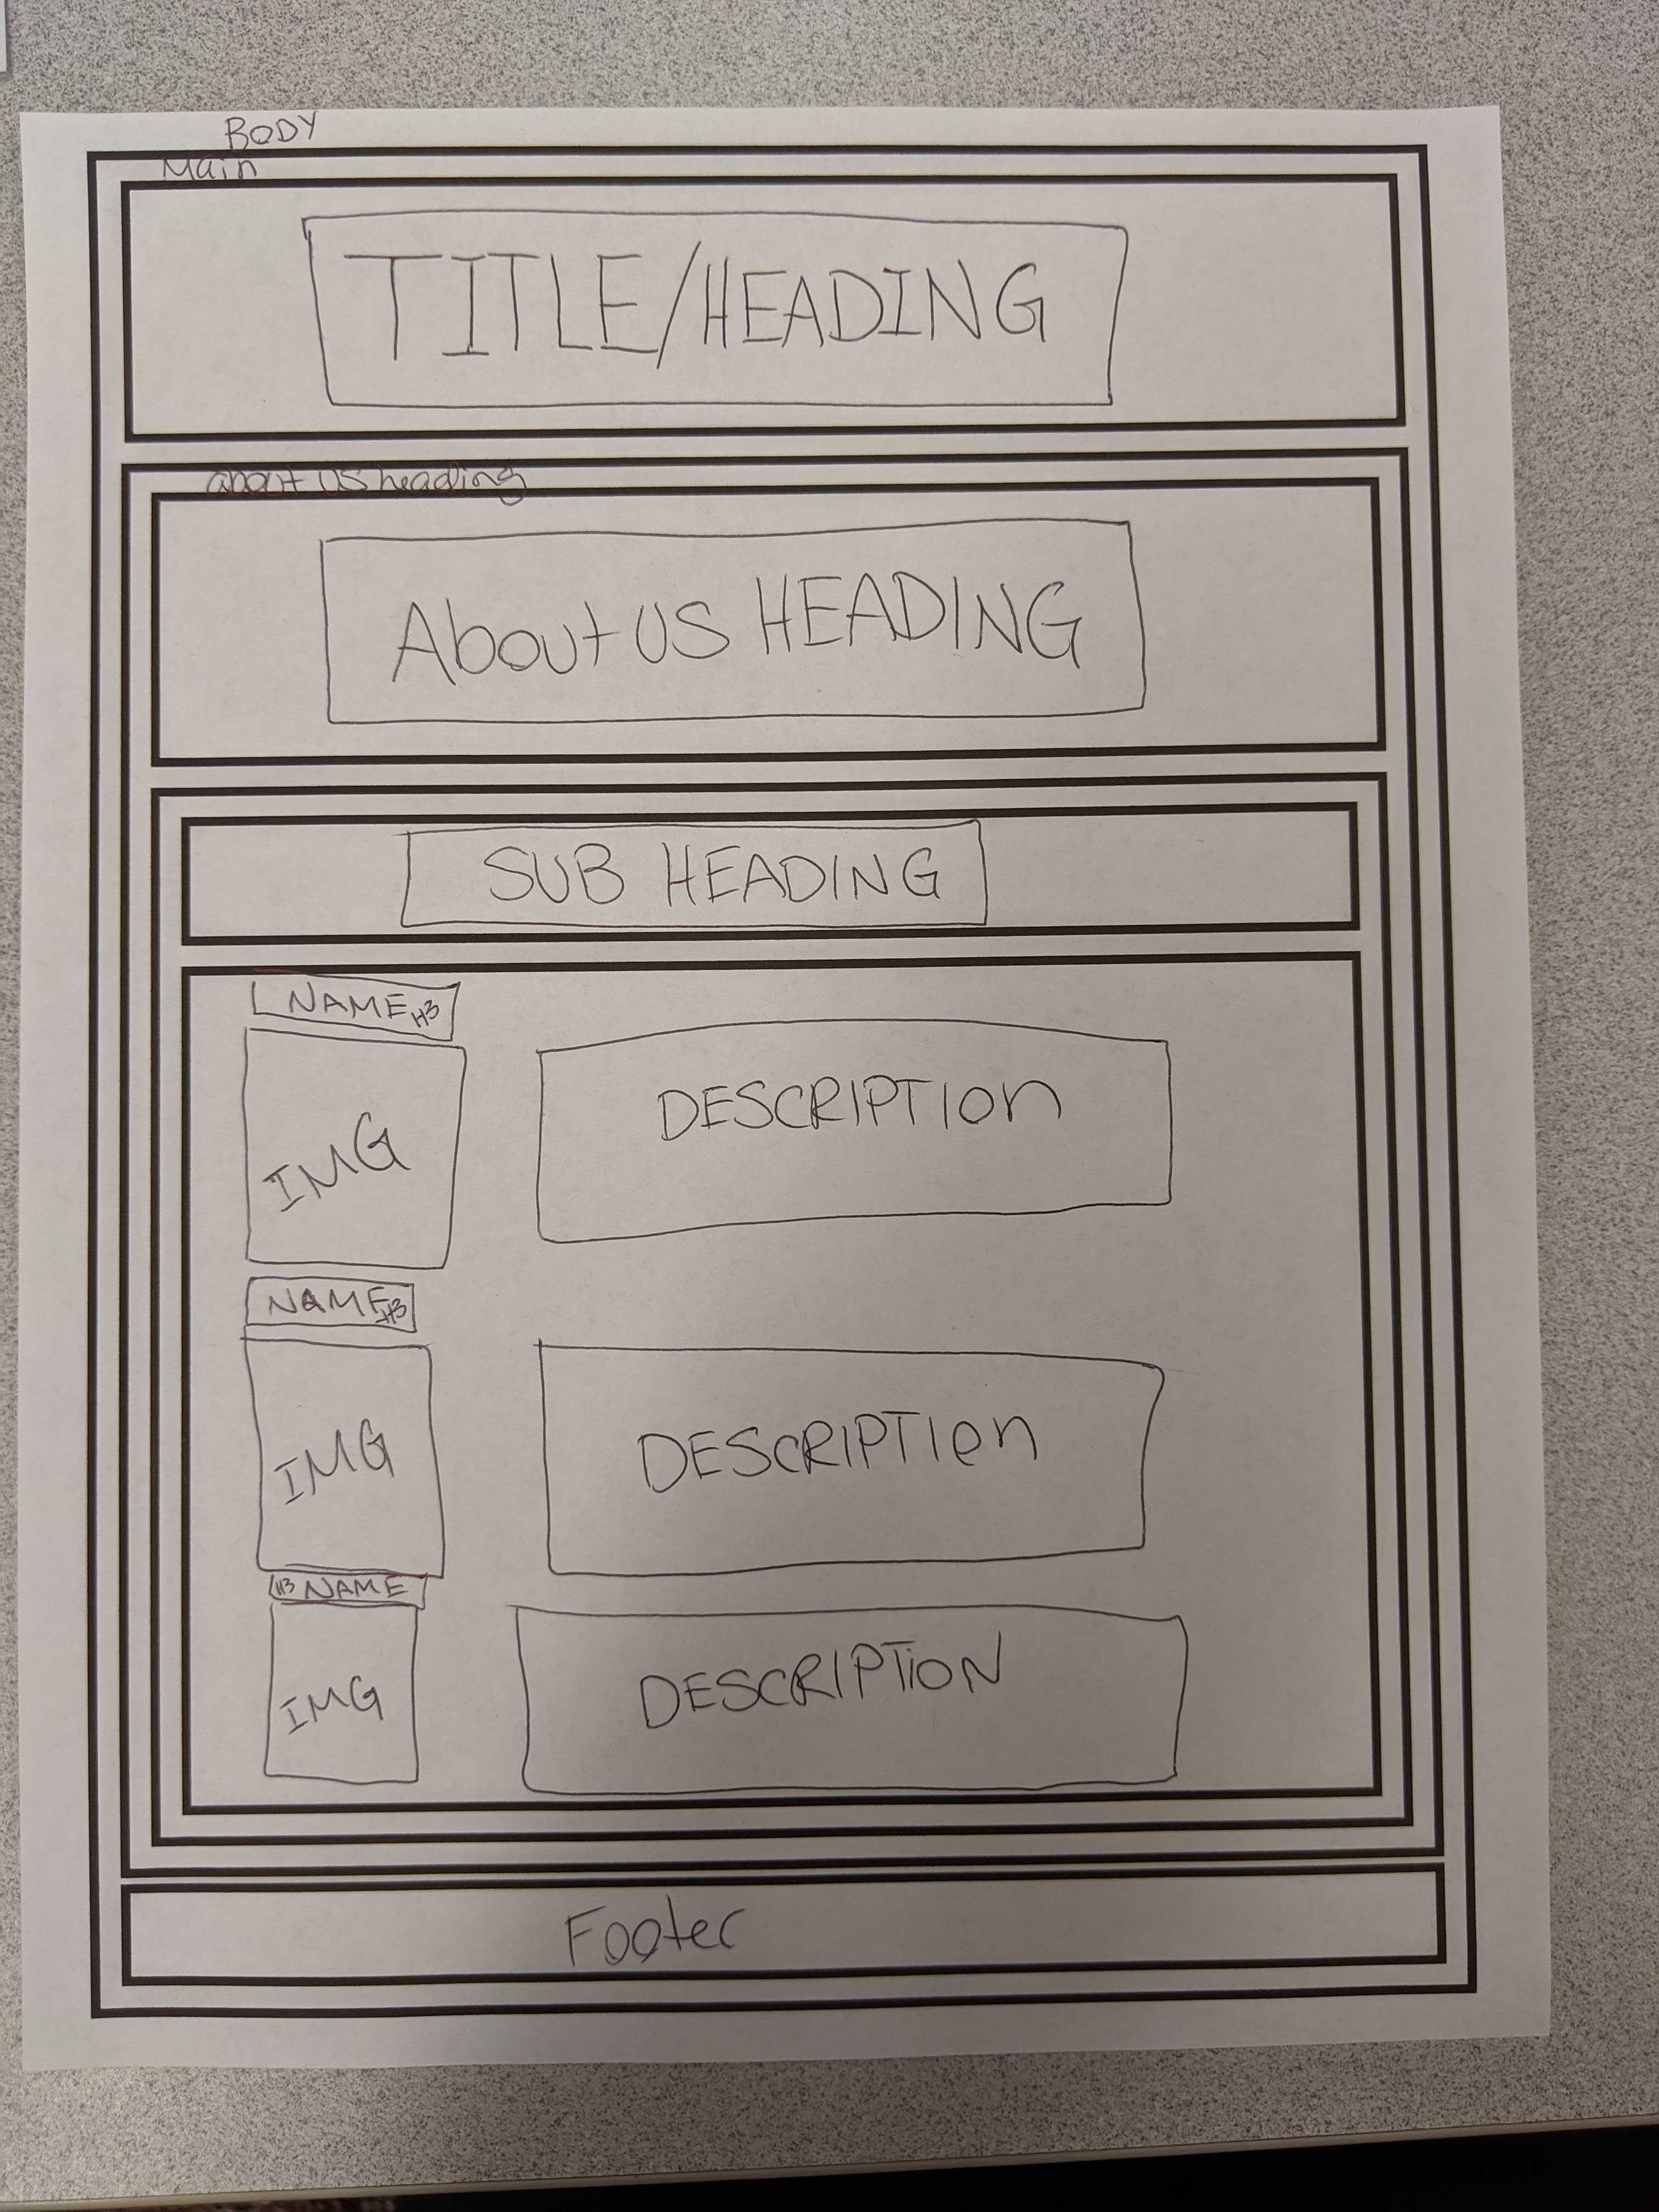 BODY
Main
TITLE/HEADING
about us heading
About US HEADING
SUB HEADING
NAME H3
IMG
DESCRIPTIOn
NAME H3
IMG
DESCRIPTIOn
H3 NAME
IMG
DESCRIPTiON
Footer